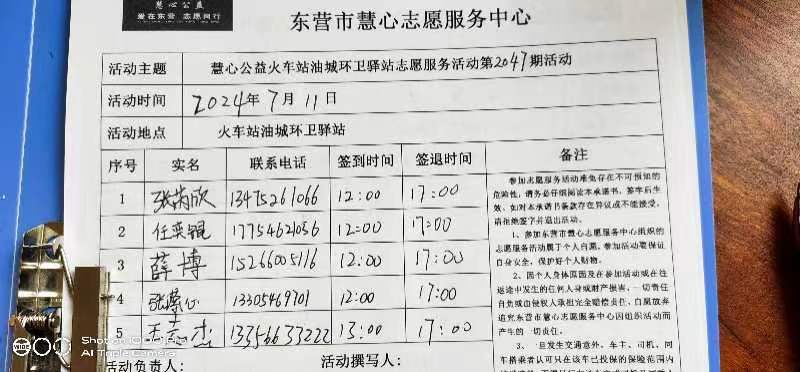 慧心公益
爱在东营 志愿同行
东营市慧心志愿服务中心
活动主题 慧心公益火车站油城环卫驿站志愿服务活动第2047期活动
活动时间 2024年7月11日
活动地点 火车站油城环卫驿站
序号 实名 联系电话 签到时间 签退时间 备注
1 张芮欣 13475261066 12:00 17:00
2 任英锟 17754621036 12:00 17:00
3 薛博 15266005116 12:00 17:00
4 13305469701 12:00 17:00
5 13356633222 13:00 17:00
参加志愿服务活动难免存在不可预知的
危险性,请务必仔细阅读本承诺书,签字后生
效。如对本承诺书条款存在异议或不能接受,
请拒绝签字并退出活动。
1、参加东营市慧心志愿服务中心组织的
志愿服务活动属于个人自愿。参加活动要保证
自身安全,保护好个人财物。
2、因个人身体原因及在参加活动或在往
返途中发生的任何人身或财产损害,一切责任
自负或由侵权人承担完全赔偿责任,自愿放弃
追究东营市慧心志愿服务中心因组织活动而
产生的一切责任。
3、一旦发生交通意外,车主、司机、同
车搭乘者认可只在该车已投保的保险范围内
活动负责人: 活动撰写人:
WIDE
Shot on
AI Triple Camera